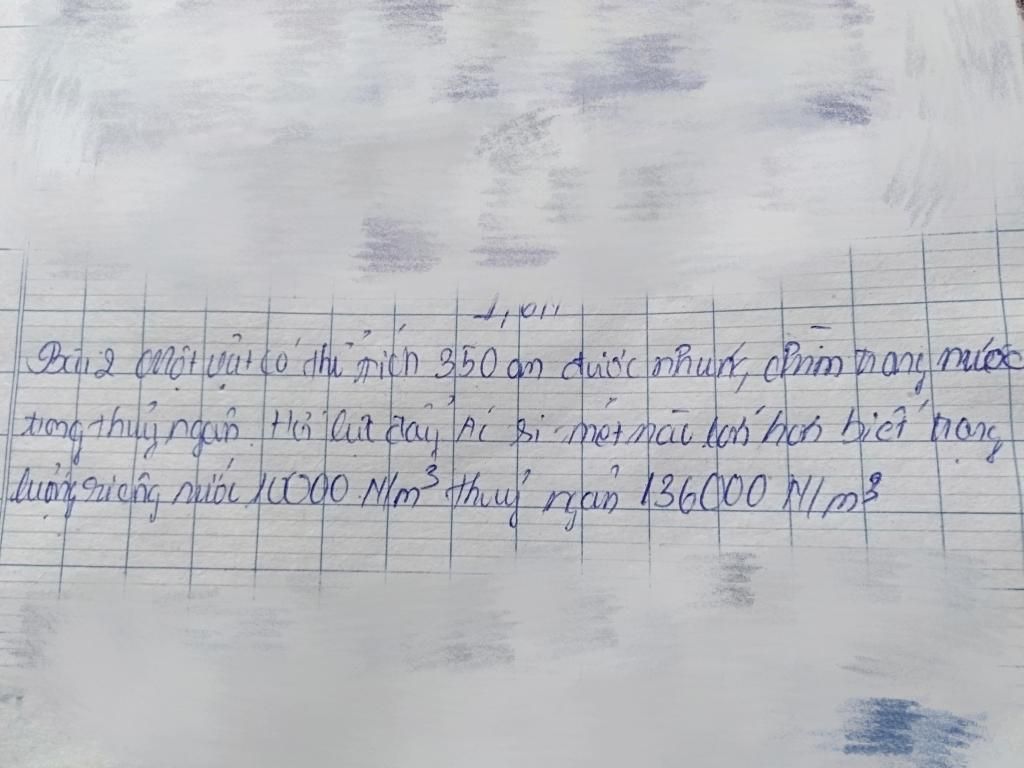 Bài 2 một vật có thể tích 350 cm được nhúng, chìm trong nước
trong thuỷ ngân. Hỏi lực đẩy Ác si mét nào lớn hơn biết trọng
lượng riêng nước 10000 N/m³ thuỷ ngân 136000 N/m³